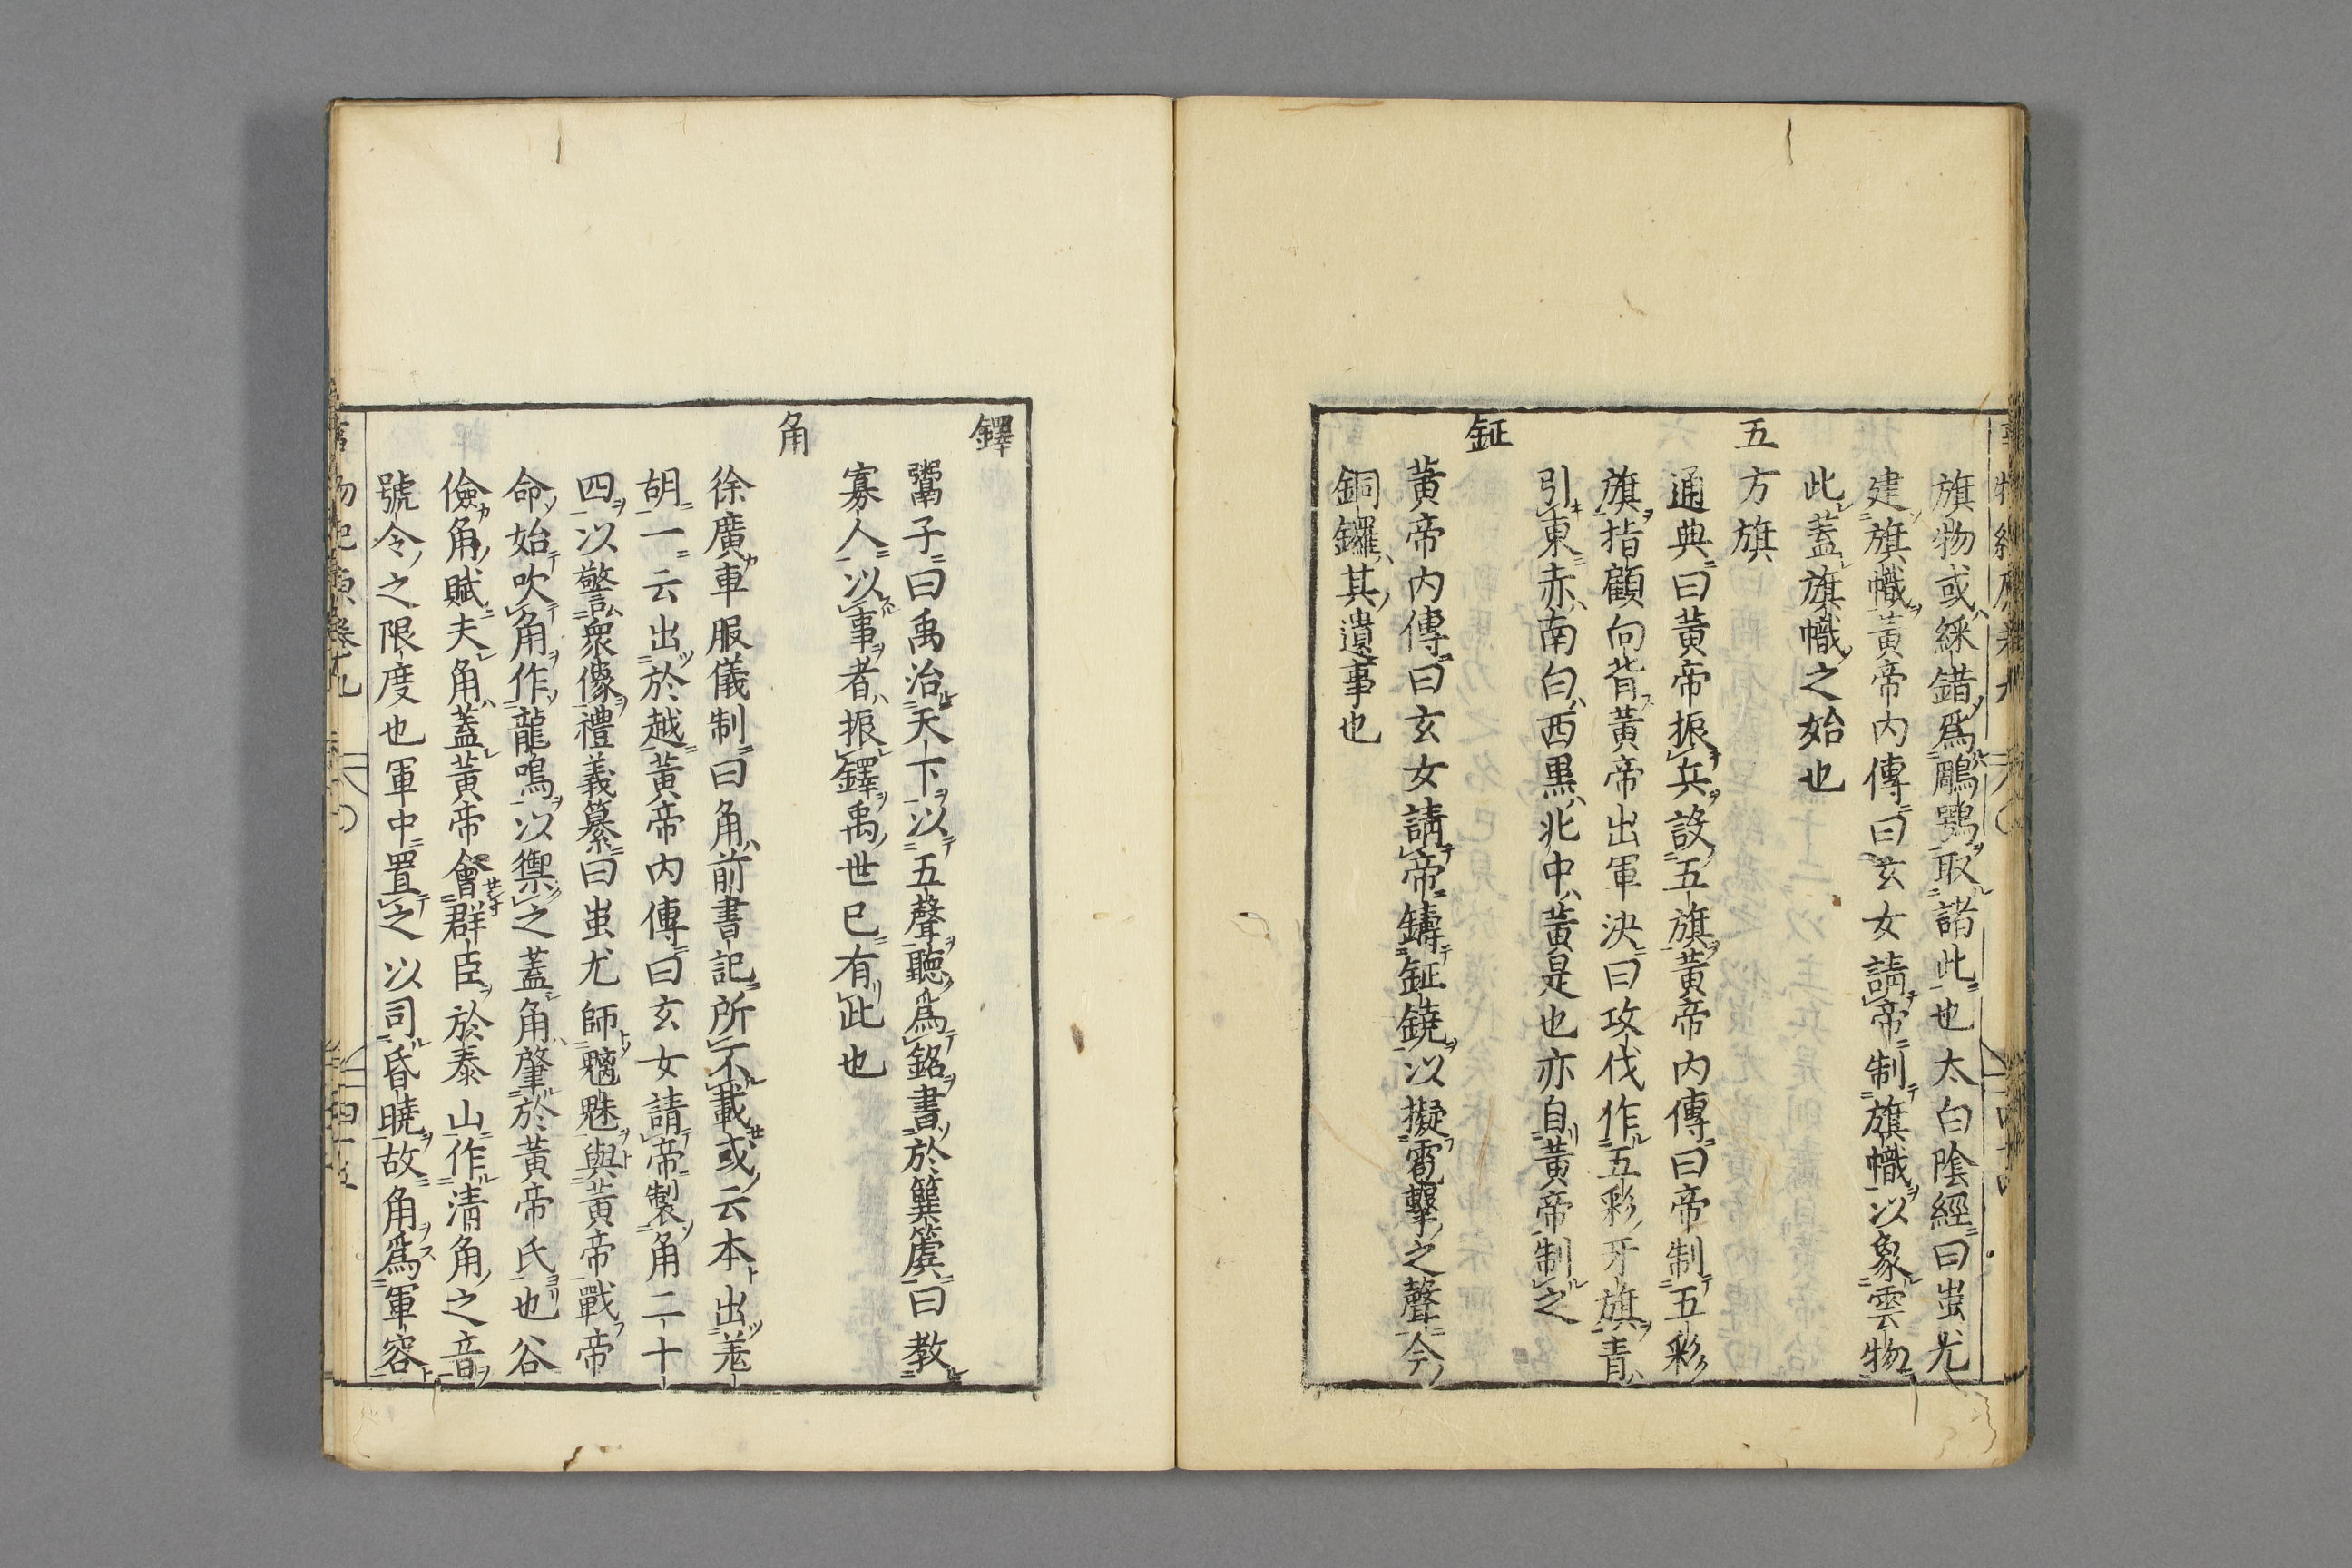 旗物或綵錯爲鵰鶚取諸此也太白陰經曰蚩尤
建旗幟黃帝内傳曰玄女請帝制旗幟以象雲物
此蓋旗幟之始也
五方旗
通典曰黃帝振兵設五旗黃帝内傳曰帝制五彩
旗指顧向背黃帝出軍决曰攻伐作五彩牙旗青
引東赤南白西黒北中黃是也亦自黃帝制之
鉦
黃帝内傳曰玄女請帝鑄鉦鐃以擬雹擊之聲今
銅鑼其遺事也
鐸
鬻子曰禹治天下以五聲聽爲銘書於簨簴曰教
寡人以事者振鐸禹世已有此也
角
徐廣車服儀制曰角前書記所不載或云本出羗
胡一云出於越黃帝内傳曰玄女請帝製角二十
四以警衆像禮義纂曰蚩尤師魑魅與黃帝戰帝
命始吹角作龍鳴以禦之蓋角肇於黃帝氏也谷
儉角賦夫角蓋黃帝會群臣於泰山作清角之音
號令之限度也軍中置之以司昏曉故角爲軍容